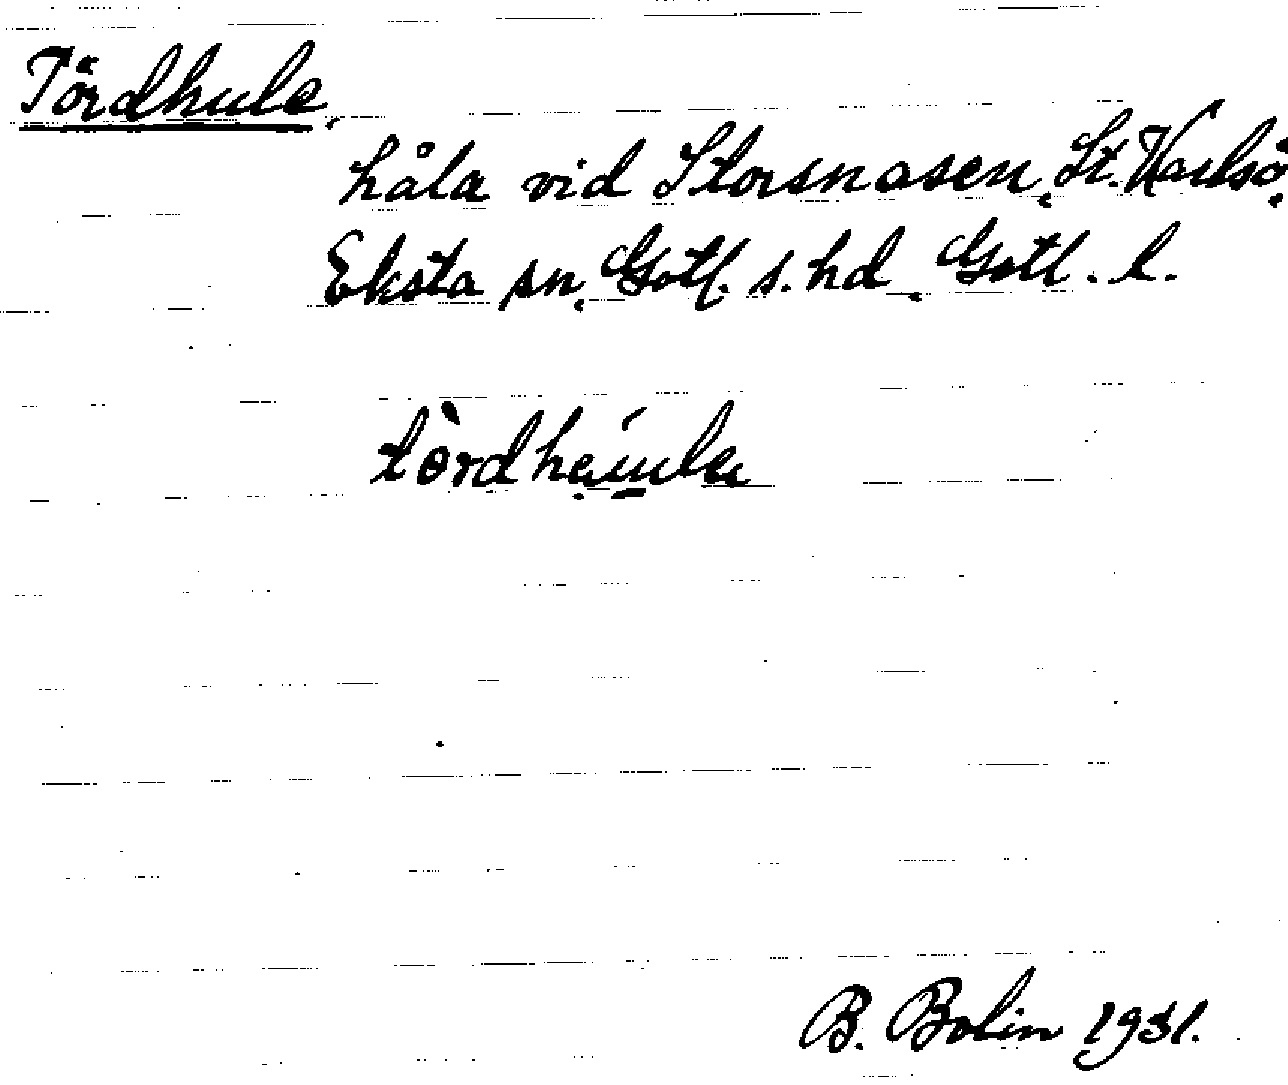 Tördhule,
håla vid Storsnasen, St. Karlsö,
Eksta sn, Gotl. s. hd, Gotl. l.
B. Bolin 1931.